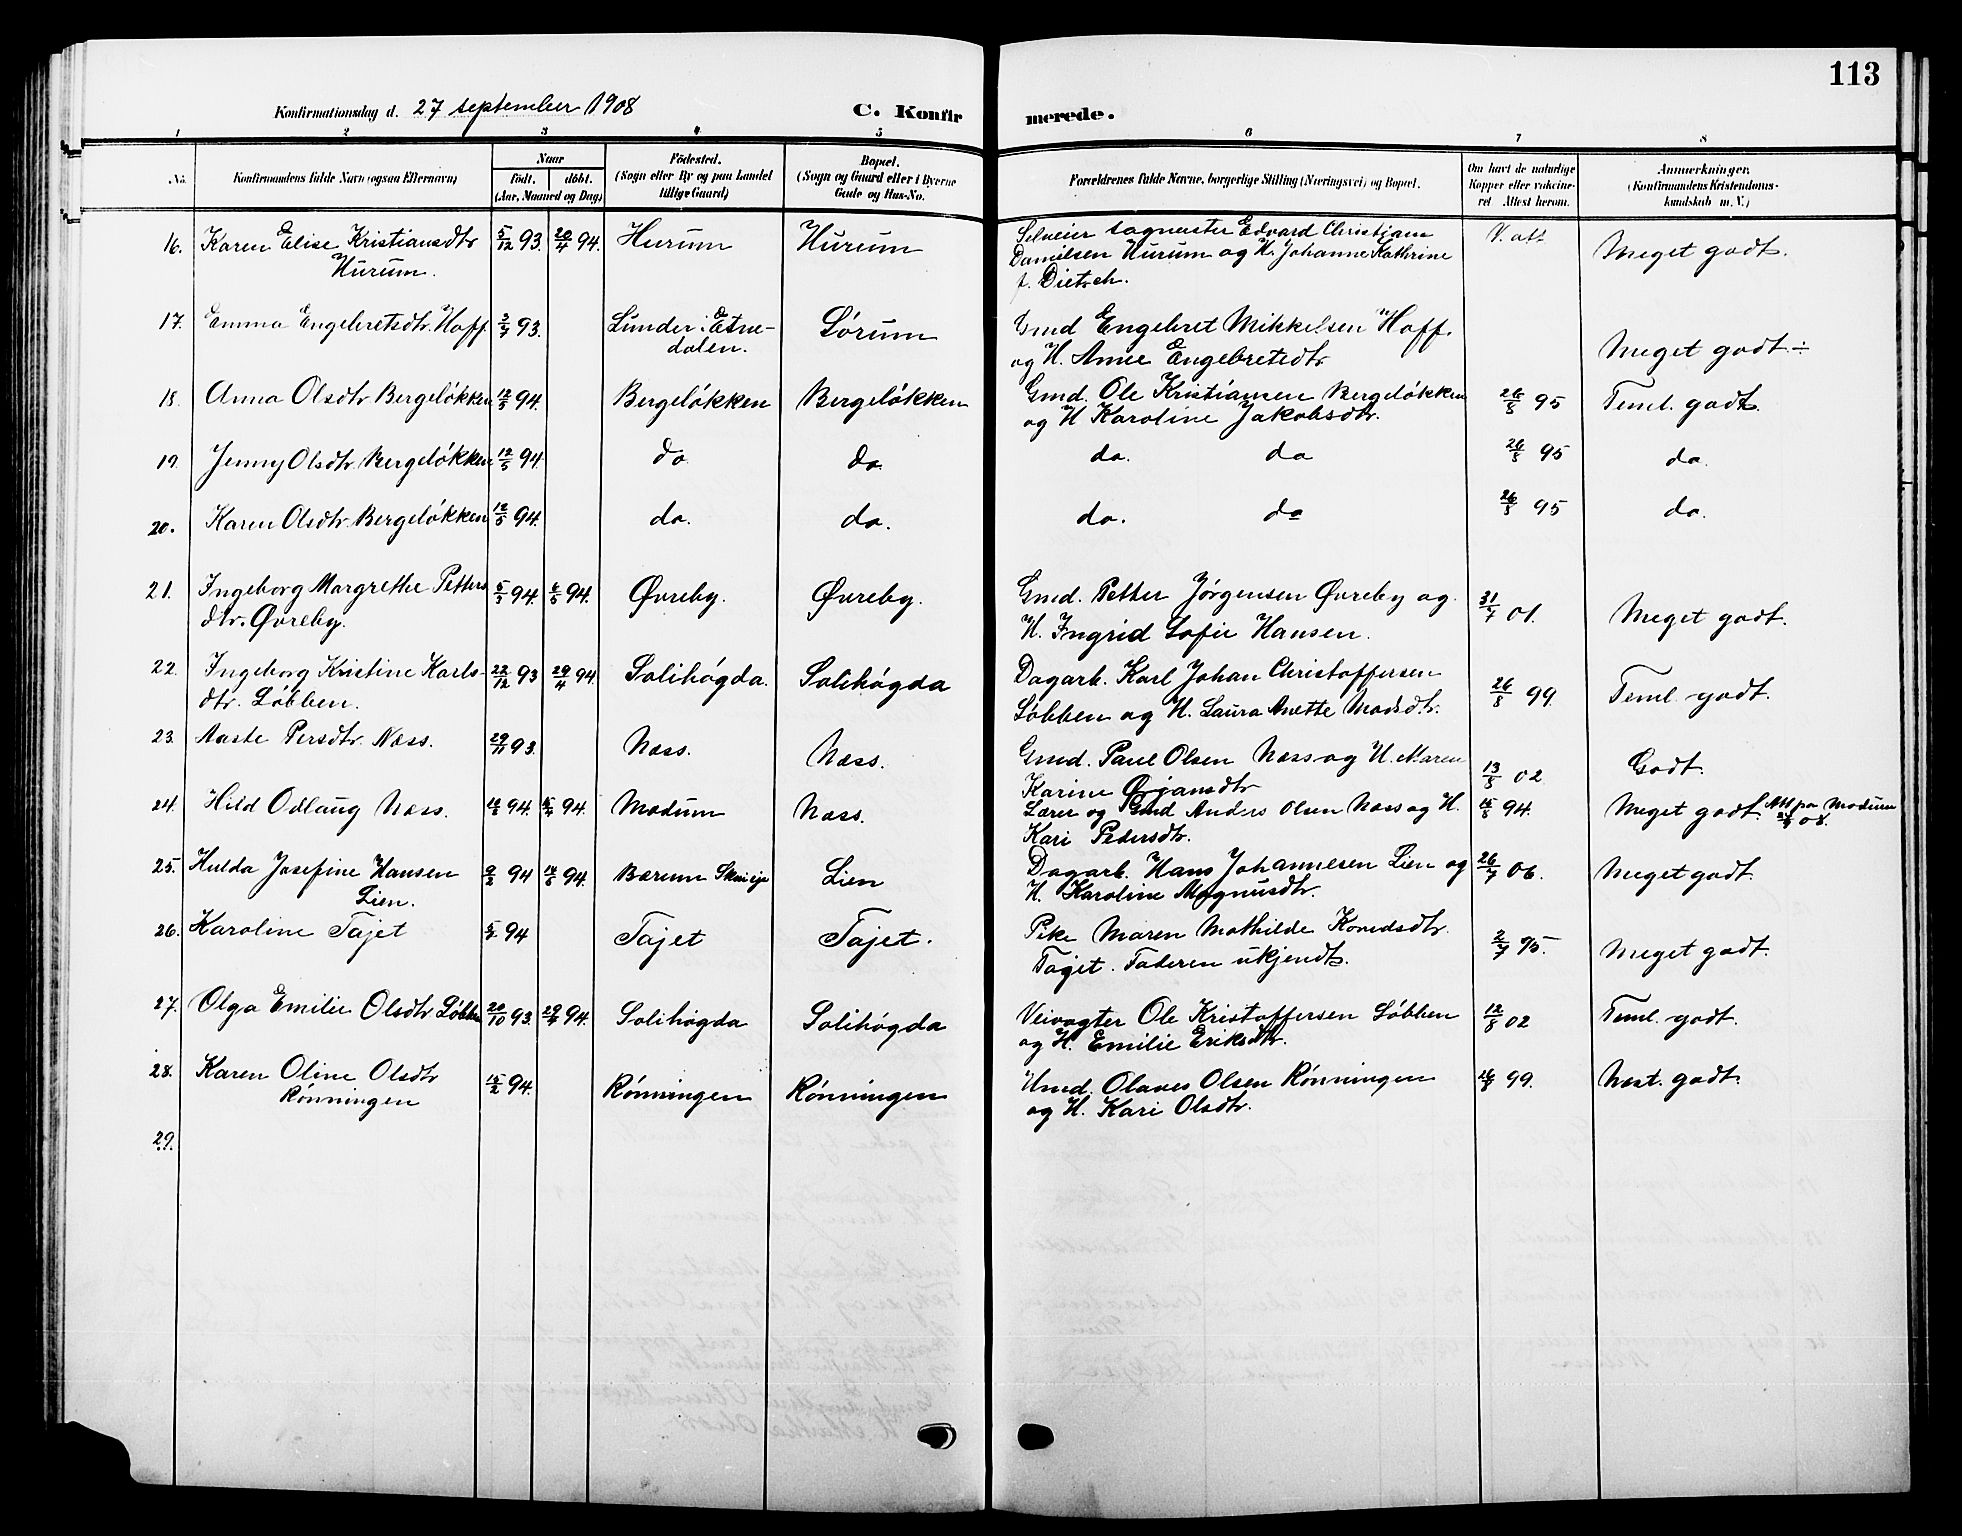 113
Konfirmationsdag d. 27 september 1908
C. Konfirmerede.
1 2 3 4 5 6 7 8
No.
Konfirmandens fulde Navn (ogsaa Efternavn)
Naar
født. døbt.
(Aar, Maaned og Dag)
Födested.
(Sogn eller By og paa Landet
tillige Gaard)
Bopæl.
(Sogn og Gaard eller i Byerne
Gade og Hus-No.
Forældrenes fulde Navne, borgerlige Stilling (Næringsvei) og Bopæl.
Om havt de naturlige
Kopper eller vakcine-
ret Attest herom.
Anmærkninger.
(Konfirmandens Kristendoms-
kundskab m. V.)
16. Karen Elise Kristiansdtr 5/12 93. 20/4 94. Hurum Hurum Selveier Edvard Christian V. att Meget godt.
Hurum. Danielsen Hurum og H. Johanne Kathrine
f. Dietsch.
17. Emma Engebretsdtr. Hoff 93. Lunder i Etne- Sørum Gmd Engebret Mikkelsen Hoff. Meget godt ÷
dalen. og H. Anne Engebretsdtr
18. Anna Olsdtr Bergeløkken 12/5 94. Bergeløkken Bergeløkken Gmd. Ole Kristiansen Bergeløkken 26/8 95 Teml. godt.
og H Karoline Jakobsdtr.
19. Jenny Olsdtr. Bergeløkken 12/5 94. do do do. do 26/8 95 do.
20. Karen Olsdtr. Bergeløkken 12/5 94. do. do. do. do 26/8 95 do.
21. Ingeborg Margrethe Petters 5/3 94. 6/5 94. Øvreby. Øvreby. Gmd. Petter Jørgensen Øvreby og 31/7 01. Meget godt.
dtr. Øvreby. H. Ingrid Sofie Hansen.
22. Ingeborg Kristine Karls- 22/12 93 29/4 94. Solihøgda. Solihøgda Dagarb. Karl Johan Christoffersen 26/8 99. Teml. godt.
dtr. Løbben. Løbben og H. Laura Anette Madsdtr.
23. Aaste Persdtr. Næss. 29/11 93. Næss. Næss. Gmd. Paul Olsen Næss og H. Maren 13/8 02 Godt.
Karine Ørjansdtr
24. Hild Odlaug Næss. 94. 94. Modum Næss. Lærer og Gmd Anders Olsen Næss og H. 94. Meget godt. Att fra Modum
Kari Pedersdtr. 08.
25. Hulda Josefine Hansen 9/2 94 94. Bærum Lien Dagarb. Hans Johannesen Lien og 26/7 06. Meget godt.
Lien. H. Karoline Magnusdtr.
26. Karoline Tajet 94 Tajet Tajet. Pike Maren Mathilde 2/7 95. Meget godt.
Tajet. Faderen ukjendt.
27. Olga Emilie Olsdtr Løbben 20/10 93. 94. Solihøgda Solihøgda Veivogter Ole Kristoffersen Løbben 12/8 02 Teml. godt.
og H. Emilie Eriksdtr.
28. Karen Oline Olsdtr 15/2 94. Rønningen Rønningen Hmd. Olaves Olsen Rønningen 26/8 99. Næst. godt.
Rønningen og H. Kari Olsdtr.
29.